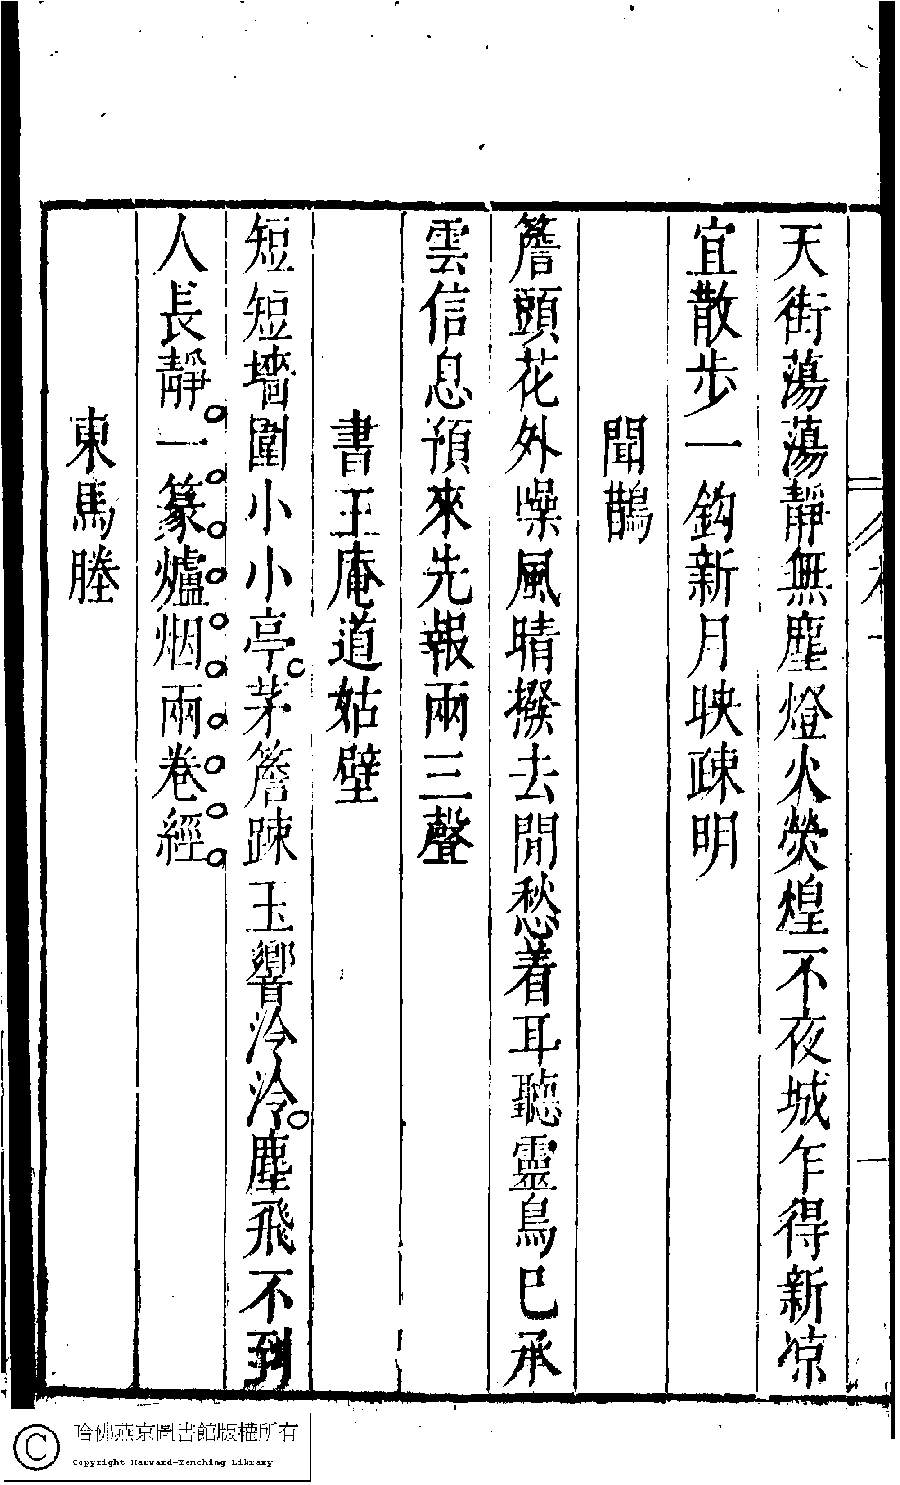 天街蕩蕩靜無塵燈火熒煌不夜城乍得新凉
宜散步一鈎新月映疎明
聞鵲
簷頭花外噪風晴撥去閒愁着耳聽靈鳥已承
雲信息預來先報兩三聲
書王庵道姑壁
短短墻圍小小亭茅簷踈玉響泠泠塵飛不到
人長靜一篆爐烟兩卷經
東馬塍
哈佛燕京圖書館版權所有
Copyright Harvard-Yenching Library